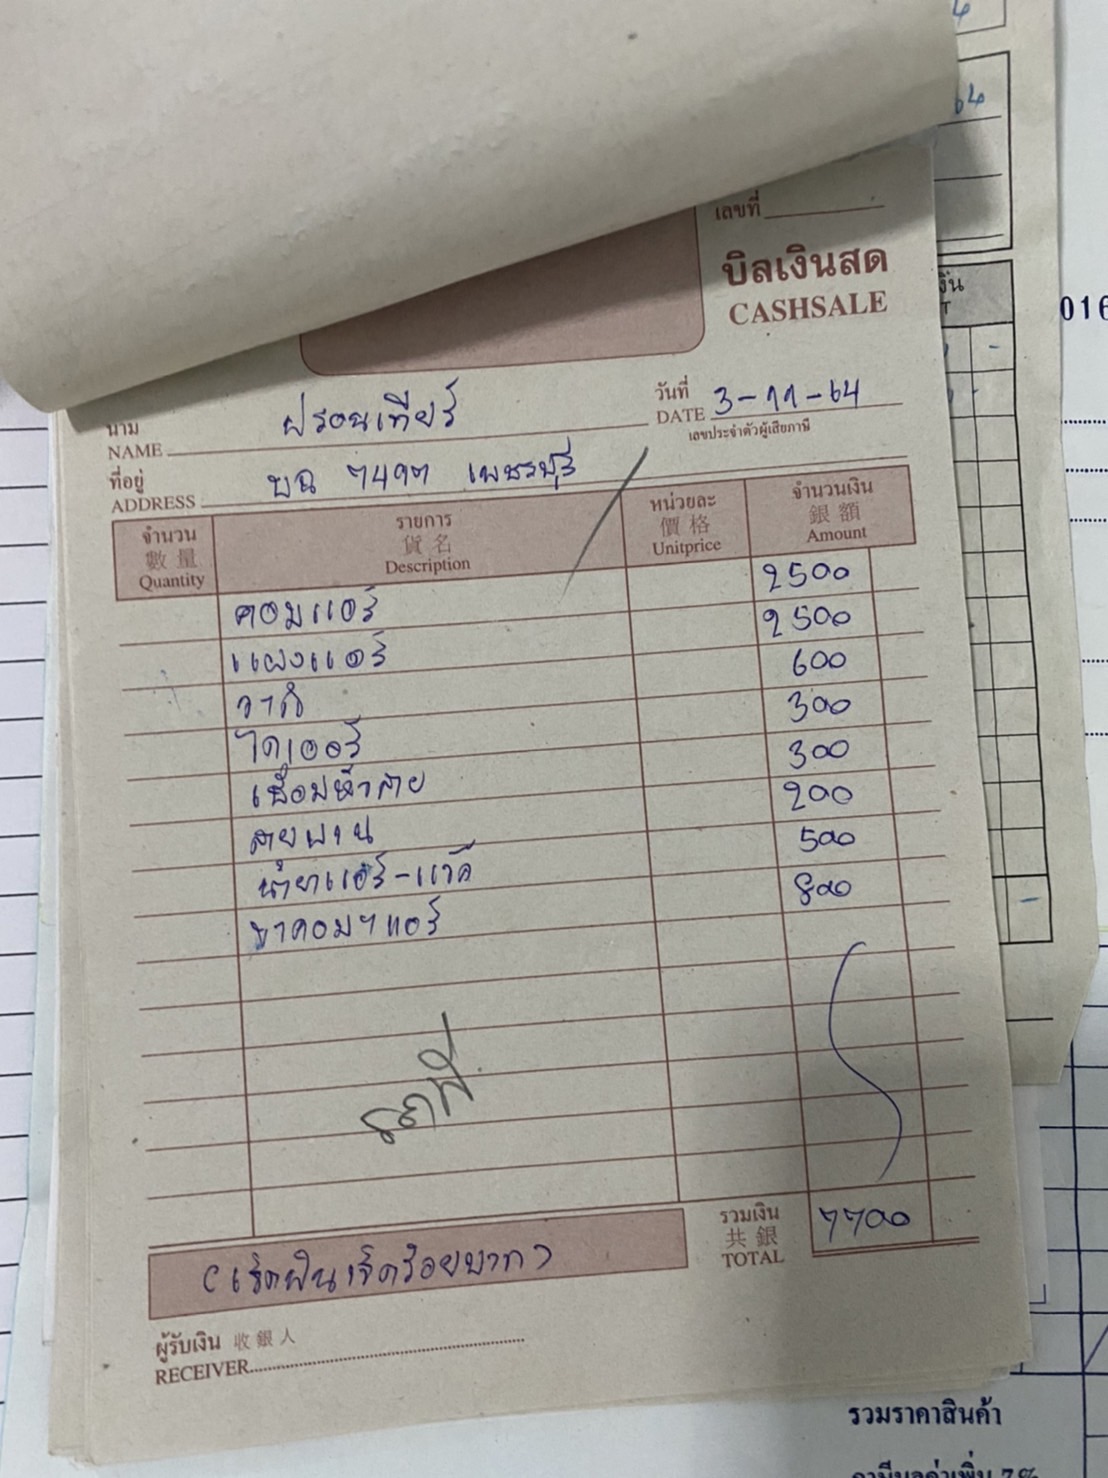 เลขที่
บิลเงินสด
CASHSALE
นาม
NAME ฟรอนเทียร์
วันที่
DATE 3-11-64
เลขประจำตัวผู้เสียภาษี
ที่อยู่
ADDRESS บฉ 7497 เพชรบุรี
จำนวน รายการ หน่วยละ จำนวนเงิน
數量 貨名 價格 銀額
Quantity Description Unitprice Amount
คอมแอร์ 2500
แผงแอร์ 2500
วาล์ว 600
ไดเออร์ 300
เชื่อมหัวสาย 300
สายพาน 200
น้ำยาแอร์-แว๊ค 500
ขาคอมฯแอร์ 800
รวมเงิน
共銀
TOTAL 7700
(เจ็ดพันเจ็ดร้อยบาท)
ผู้รับเงิน 收銀人
RECEIVER
64
016
รวมราคาสินค้า
ภาษีมูลค่าเพิ่ม 7%